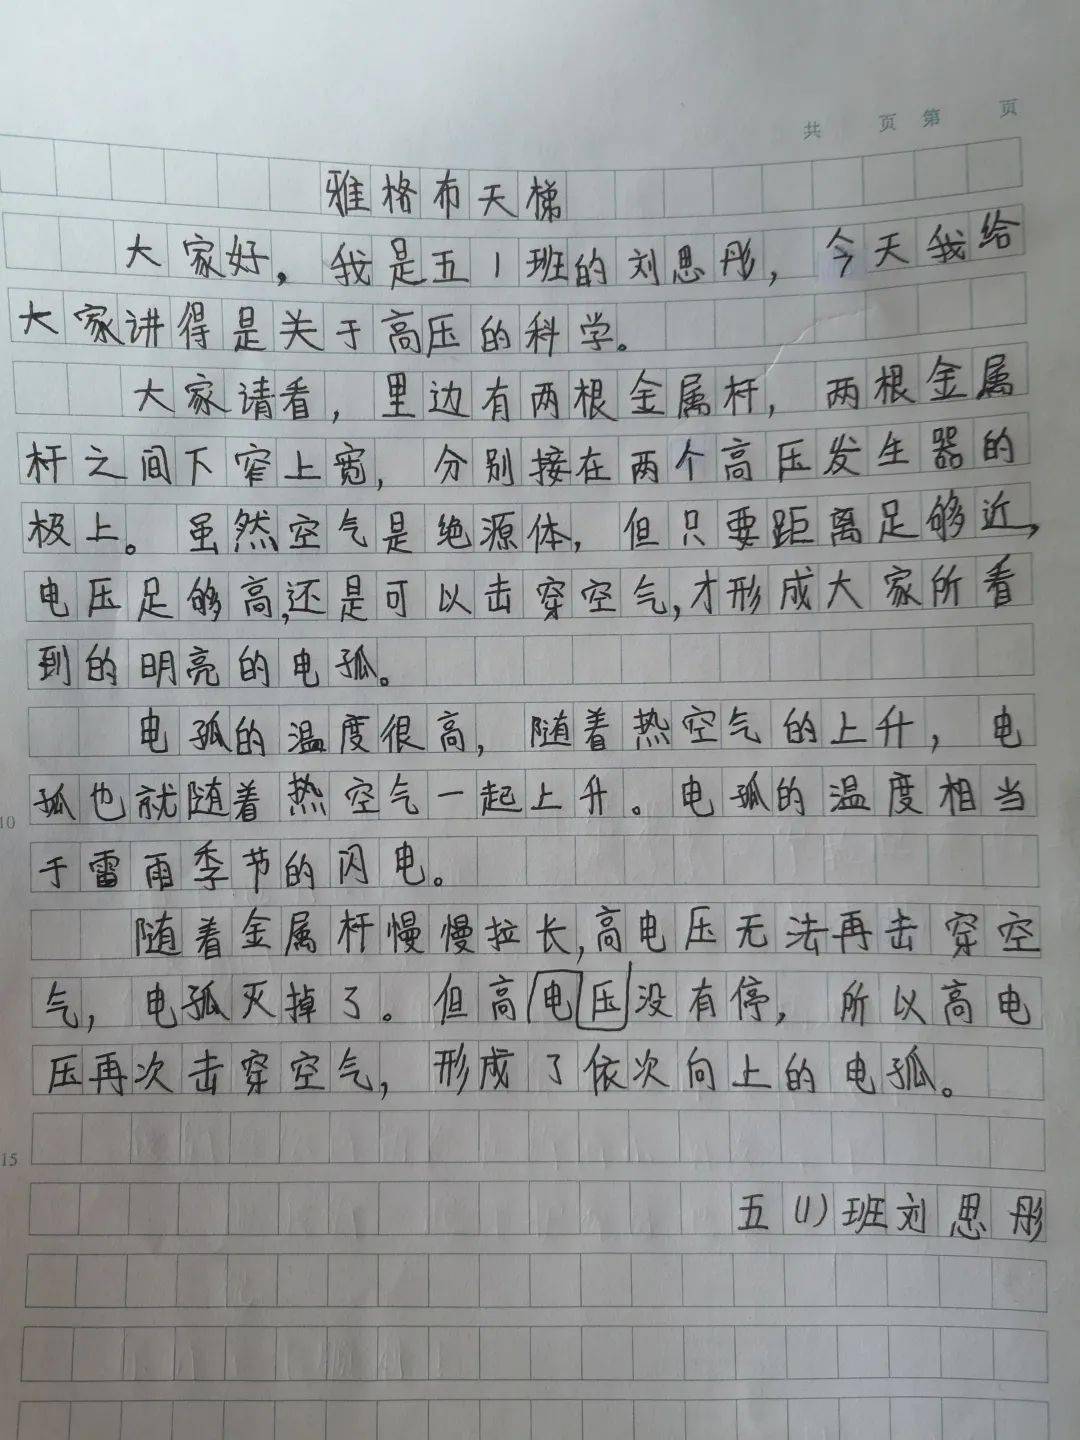 共 页 第 页
雅格布天梯
大家好，我是五1班的刘思彤，今天我给
大家讲得是关于高压的科学。
大家请看，里边有两根金属杆，两根金属
杆之间下窄上宽，分别接在两个高压发生器的
极上。虽然空气是绝源体，但只要距离足够近，
电压足够高，还是可以击穿空气，才形成大家所看
到的明亮的电弧。
电弧的温度很高，随着热空气的上升，电
弧也就随着热空气一起上升。电弧的温度相当
10
于雷雨季节的闪电。
随着金属杆慢慢拉长，高电压无法再击穿空
气，电弧灭掉了。但高电压没有停，所以高电
压再次击穿空气，形成了依次向上的电弧。
15
五(1)班刘思彤